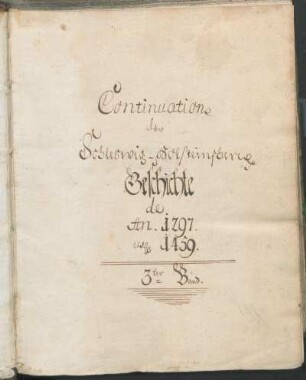 Continuation
der
Schleswig-Holsteinische
Geschichte
de
An. 1297.
usq 1459.
3ter Band.